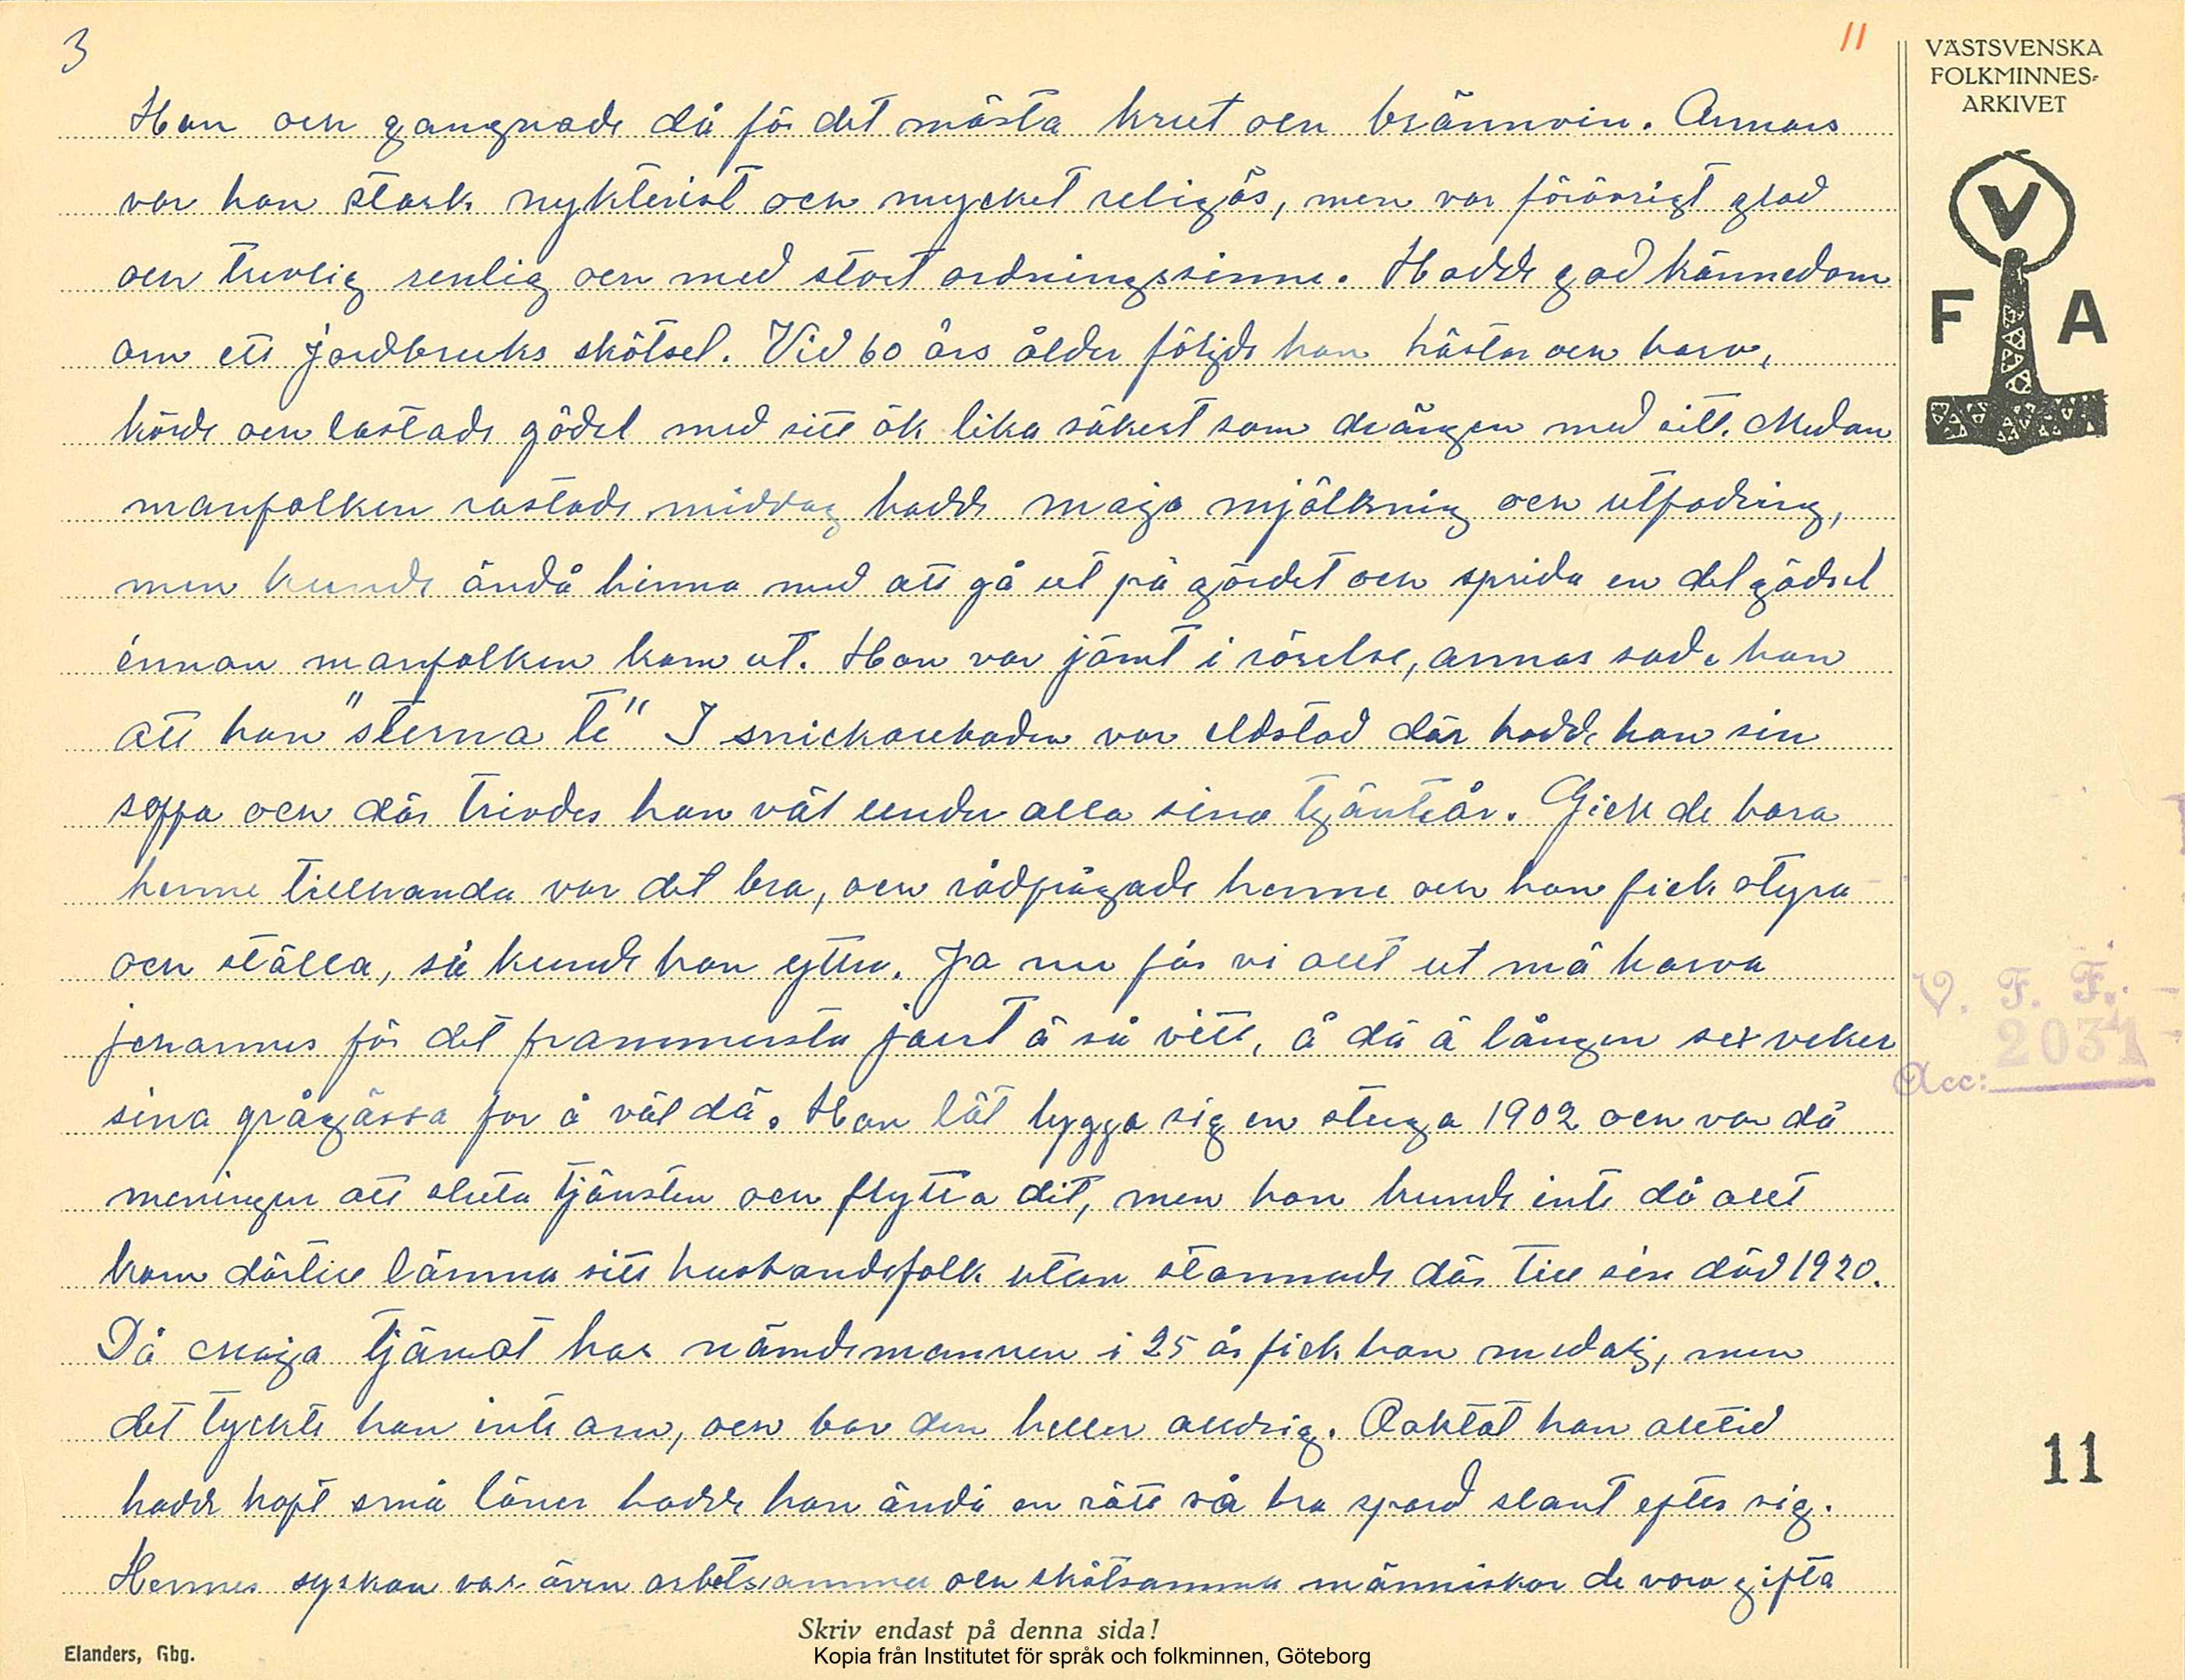 3
11
VÄSTSVENSKA
FOLKMINNES-
ARKIVET
V
F A
Hon och gangnade då för det mästa krut och brännvin. Annars
var hon stark nykterist och mycket religös, men var förövrigt glad
och trevlig renlig och med stort ordningssinne. Hadde god kännedom
om ett jordbruks skötsel. Vid 60 års ålder följde hon hästar och harv,
körde och lastade gödsel med sitt ök lika säkert som drängen med sitt. Medan
manfolken rastade middag hadde maja mjölkning och utfodring,
men kunde ändå hinna med att gå ut på gärdet och sprida en del gödsel
innan manfolken kom ut. Hon var jämt i rörelse, annas sade hon
att hon "sterna te" I snickareboden var eldstad där hadde hon sin
soffa och där trivdes hon väl under alla sina tjänteår. Gick de bara
henne tillhanda var det bra, och rådfrågade henne och hon fick styra
och ställa, så kunde hon yttra. Ja nu får vi allt ut må harva
johannes för det frammersta jært ä så vitt, å dä ä lången sex veker
sina grågässa for å väl dä. Hon lät bygga sig en stuga 1902 och var då
meningen att sluta tjänsten och flytta dit, men hon kunde inte då allt
kom därtill lämna sitt husbondsfolk utan stannade där till sin död 1920.
Då maja tjänat hos nämdemannen i 25 år fick hon medalj, men
det tyckte hon inte om, och bar den heller alldrig. Oaktat hon alltid
hadde haft små löner hadde hon ändå en rätt så bra spard slant efter sig.
Hennes syskon var även arbetsamma och skötsamma människor de voro gifta
V. F. F.
2031
Acc:
11
Skriv endast på denna sida!
Elanders, Gbg.
Kopia från Institutet för språk och folkminnen, Göteborg